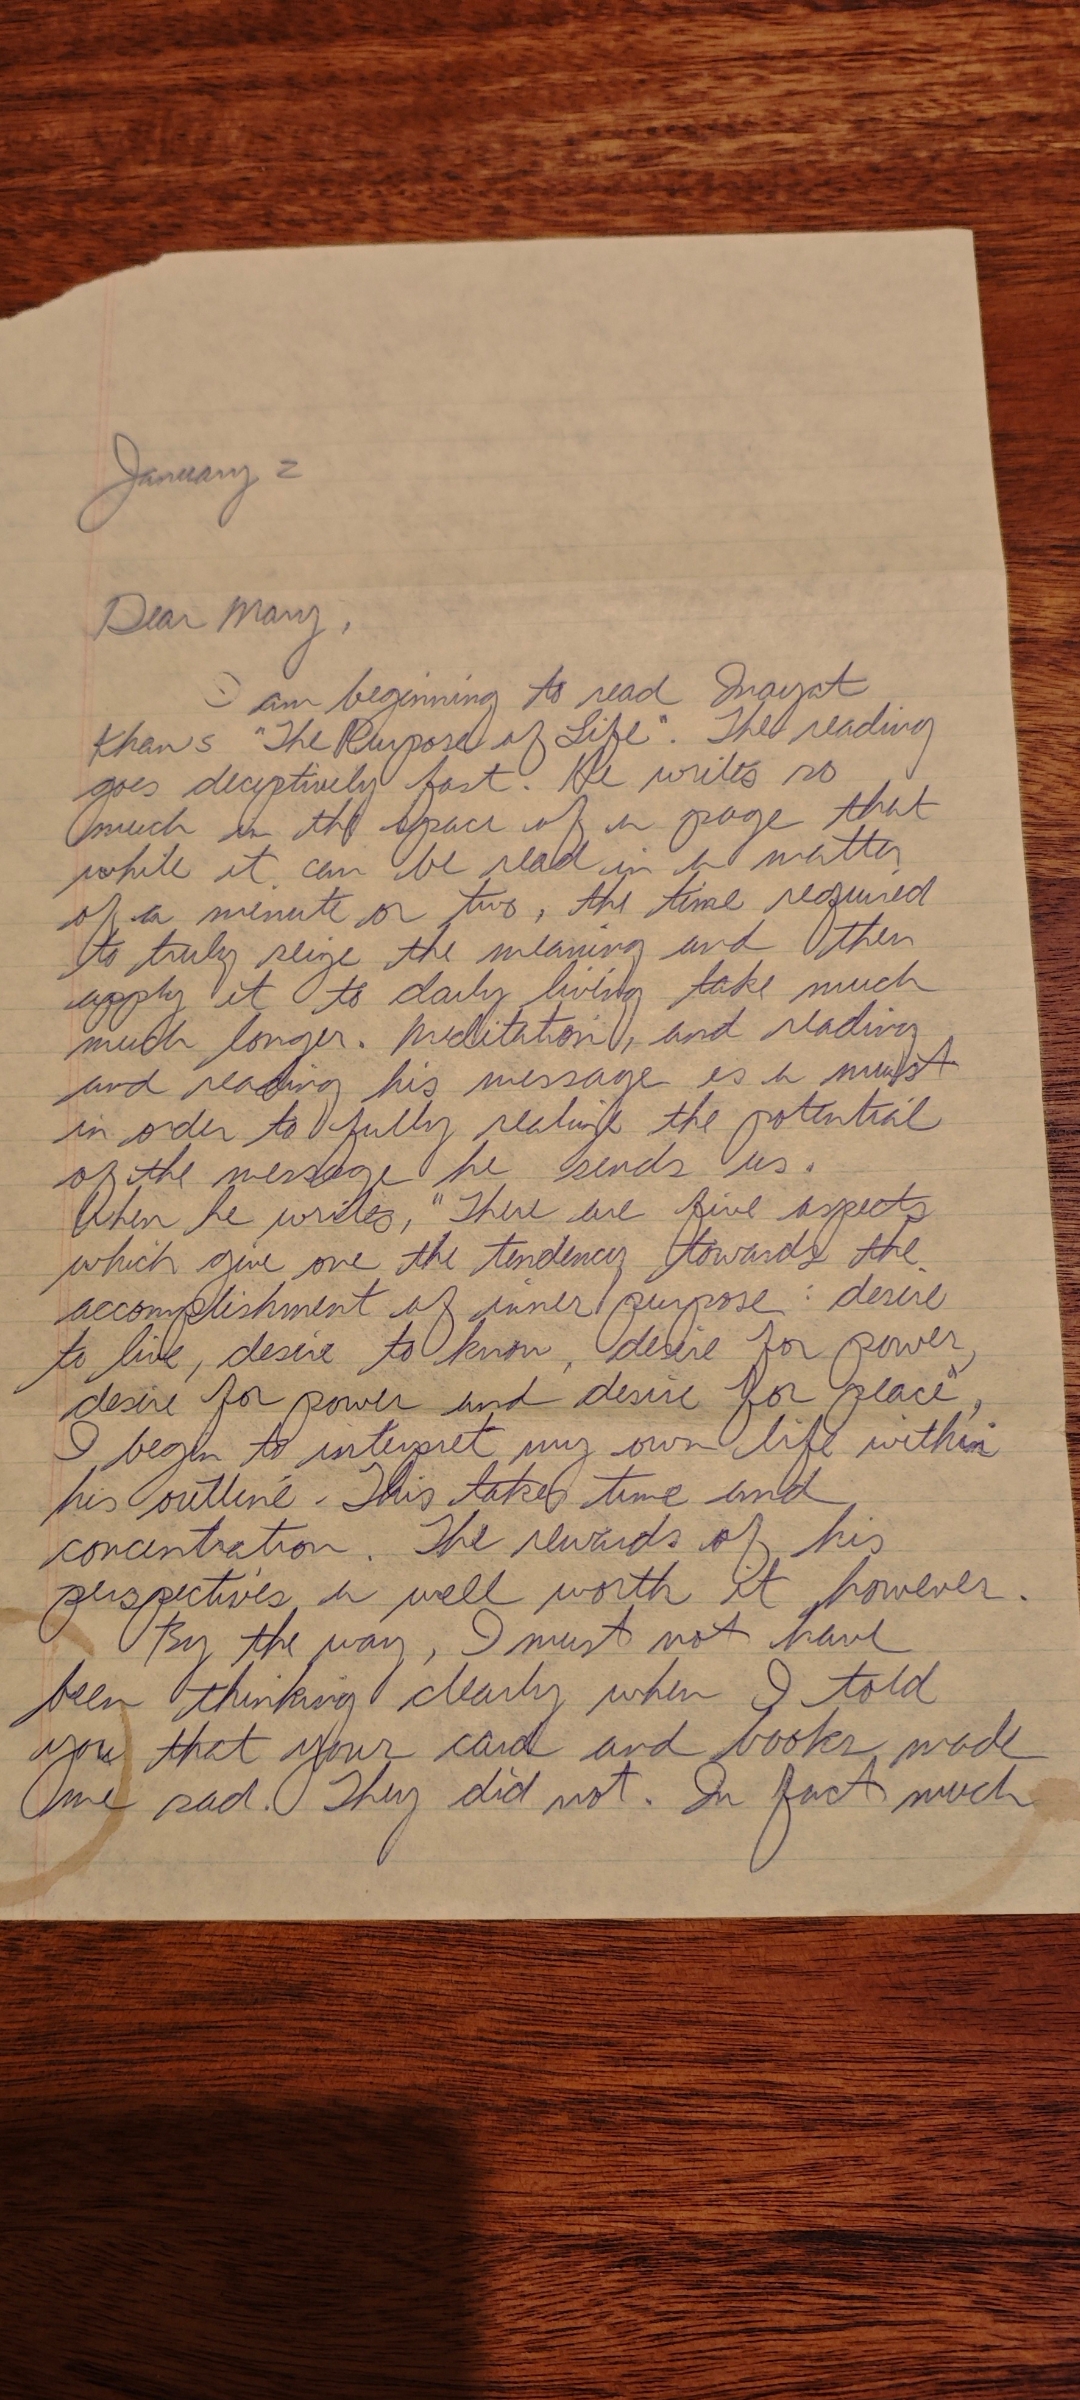 January 2
Dear Mary,
I am beginning to read Inayat
Khan's "The Purpose of Life". The reading
goes deceptively fast. He writes so
much in the space of a page that
while it can be read in a matter
of a minute or two, the time required
to truly seize the meaning and then
apply it to daily living take much
much longer. Meditation, and reading
and reading his message is a must
in order to fully realize the potential
of the message he sends us.
When he writes, "There are five aspects
which give one the tendency towards the
accomplishment of inner purpose: desire
to live, desire to know, desire for power,
desire for power and desire for peace",
I begin to interpret my own life within
his outline. This takes time and
concentration. The rewards of his
perspectives is well worth it however.
By the way, I must not have
been thinking clearly when I told
you that your card and books made
me sad. They did not. In fact much